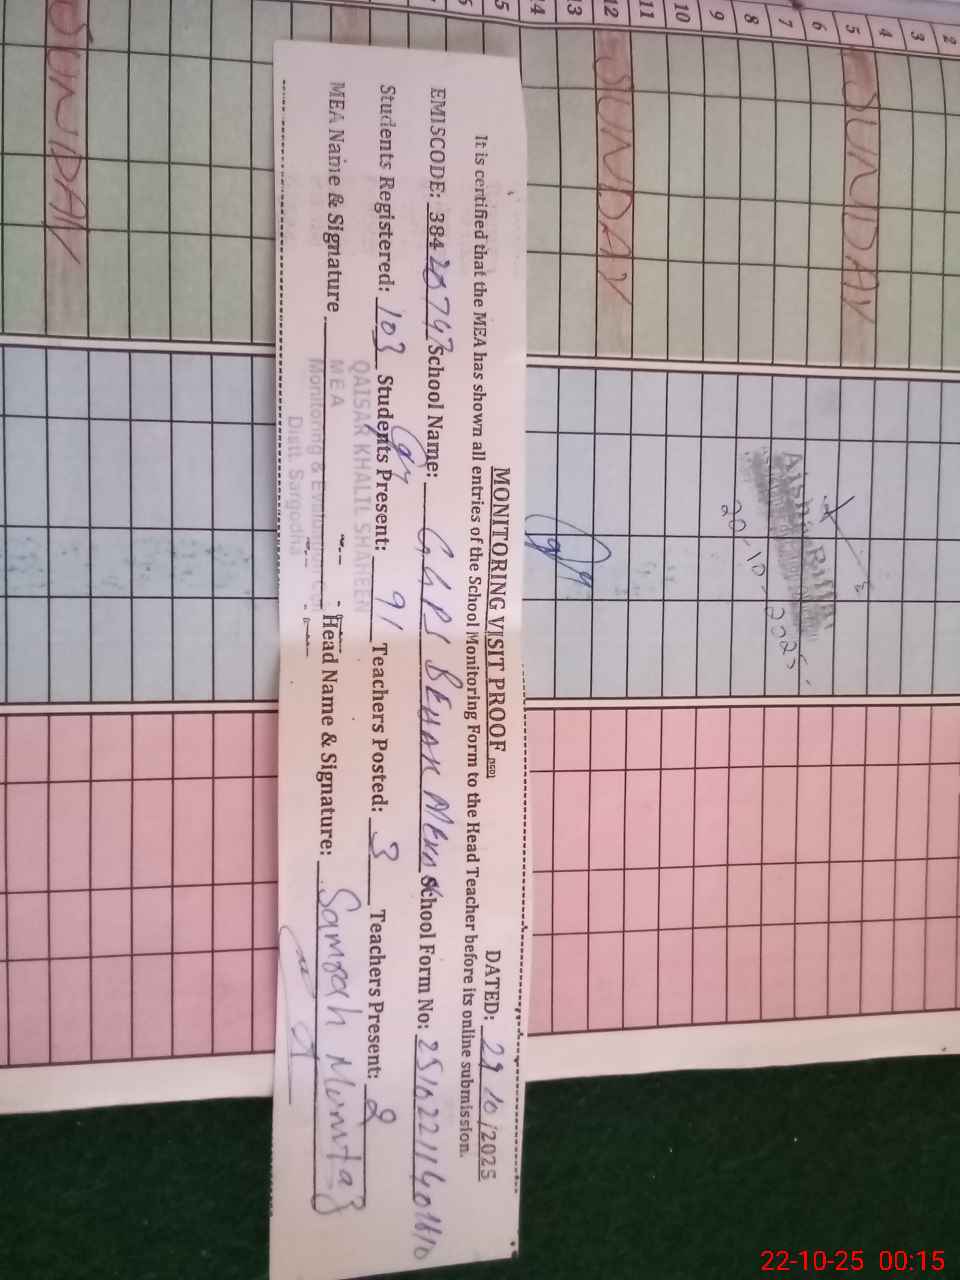 MONITORING VISIT PROOF
DATED: 22/10/2025
It is certified that the MEA has shown all entries of the School Monitoring Form to the Head Teacher before its online submission.
EMISCODE: 38420747 School Name: GGPS BEHAK MEKN School Form No:
Students Registered: 103 Students Present: 91 Teachers Posted: 3 Teachers Present: 2
MEA Name & Signature Head Name & Signature: Samrah Mumtaz
QAISAR KHALIL SHAHEEN
MEA
Monitoring & Evaluation
Distt. Sargodha
2
3
4
5
6
7
8
9
10
11
12
13
14
15
SUNDAY
SUNDAY
SUNDAY
20-10-2025
22-10-25 00:15